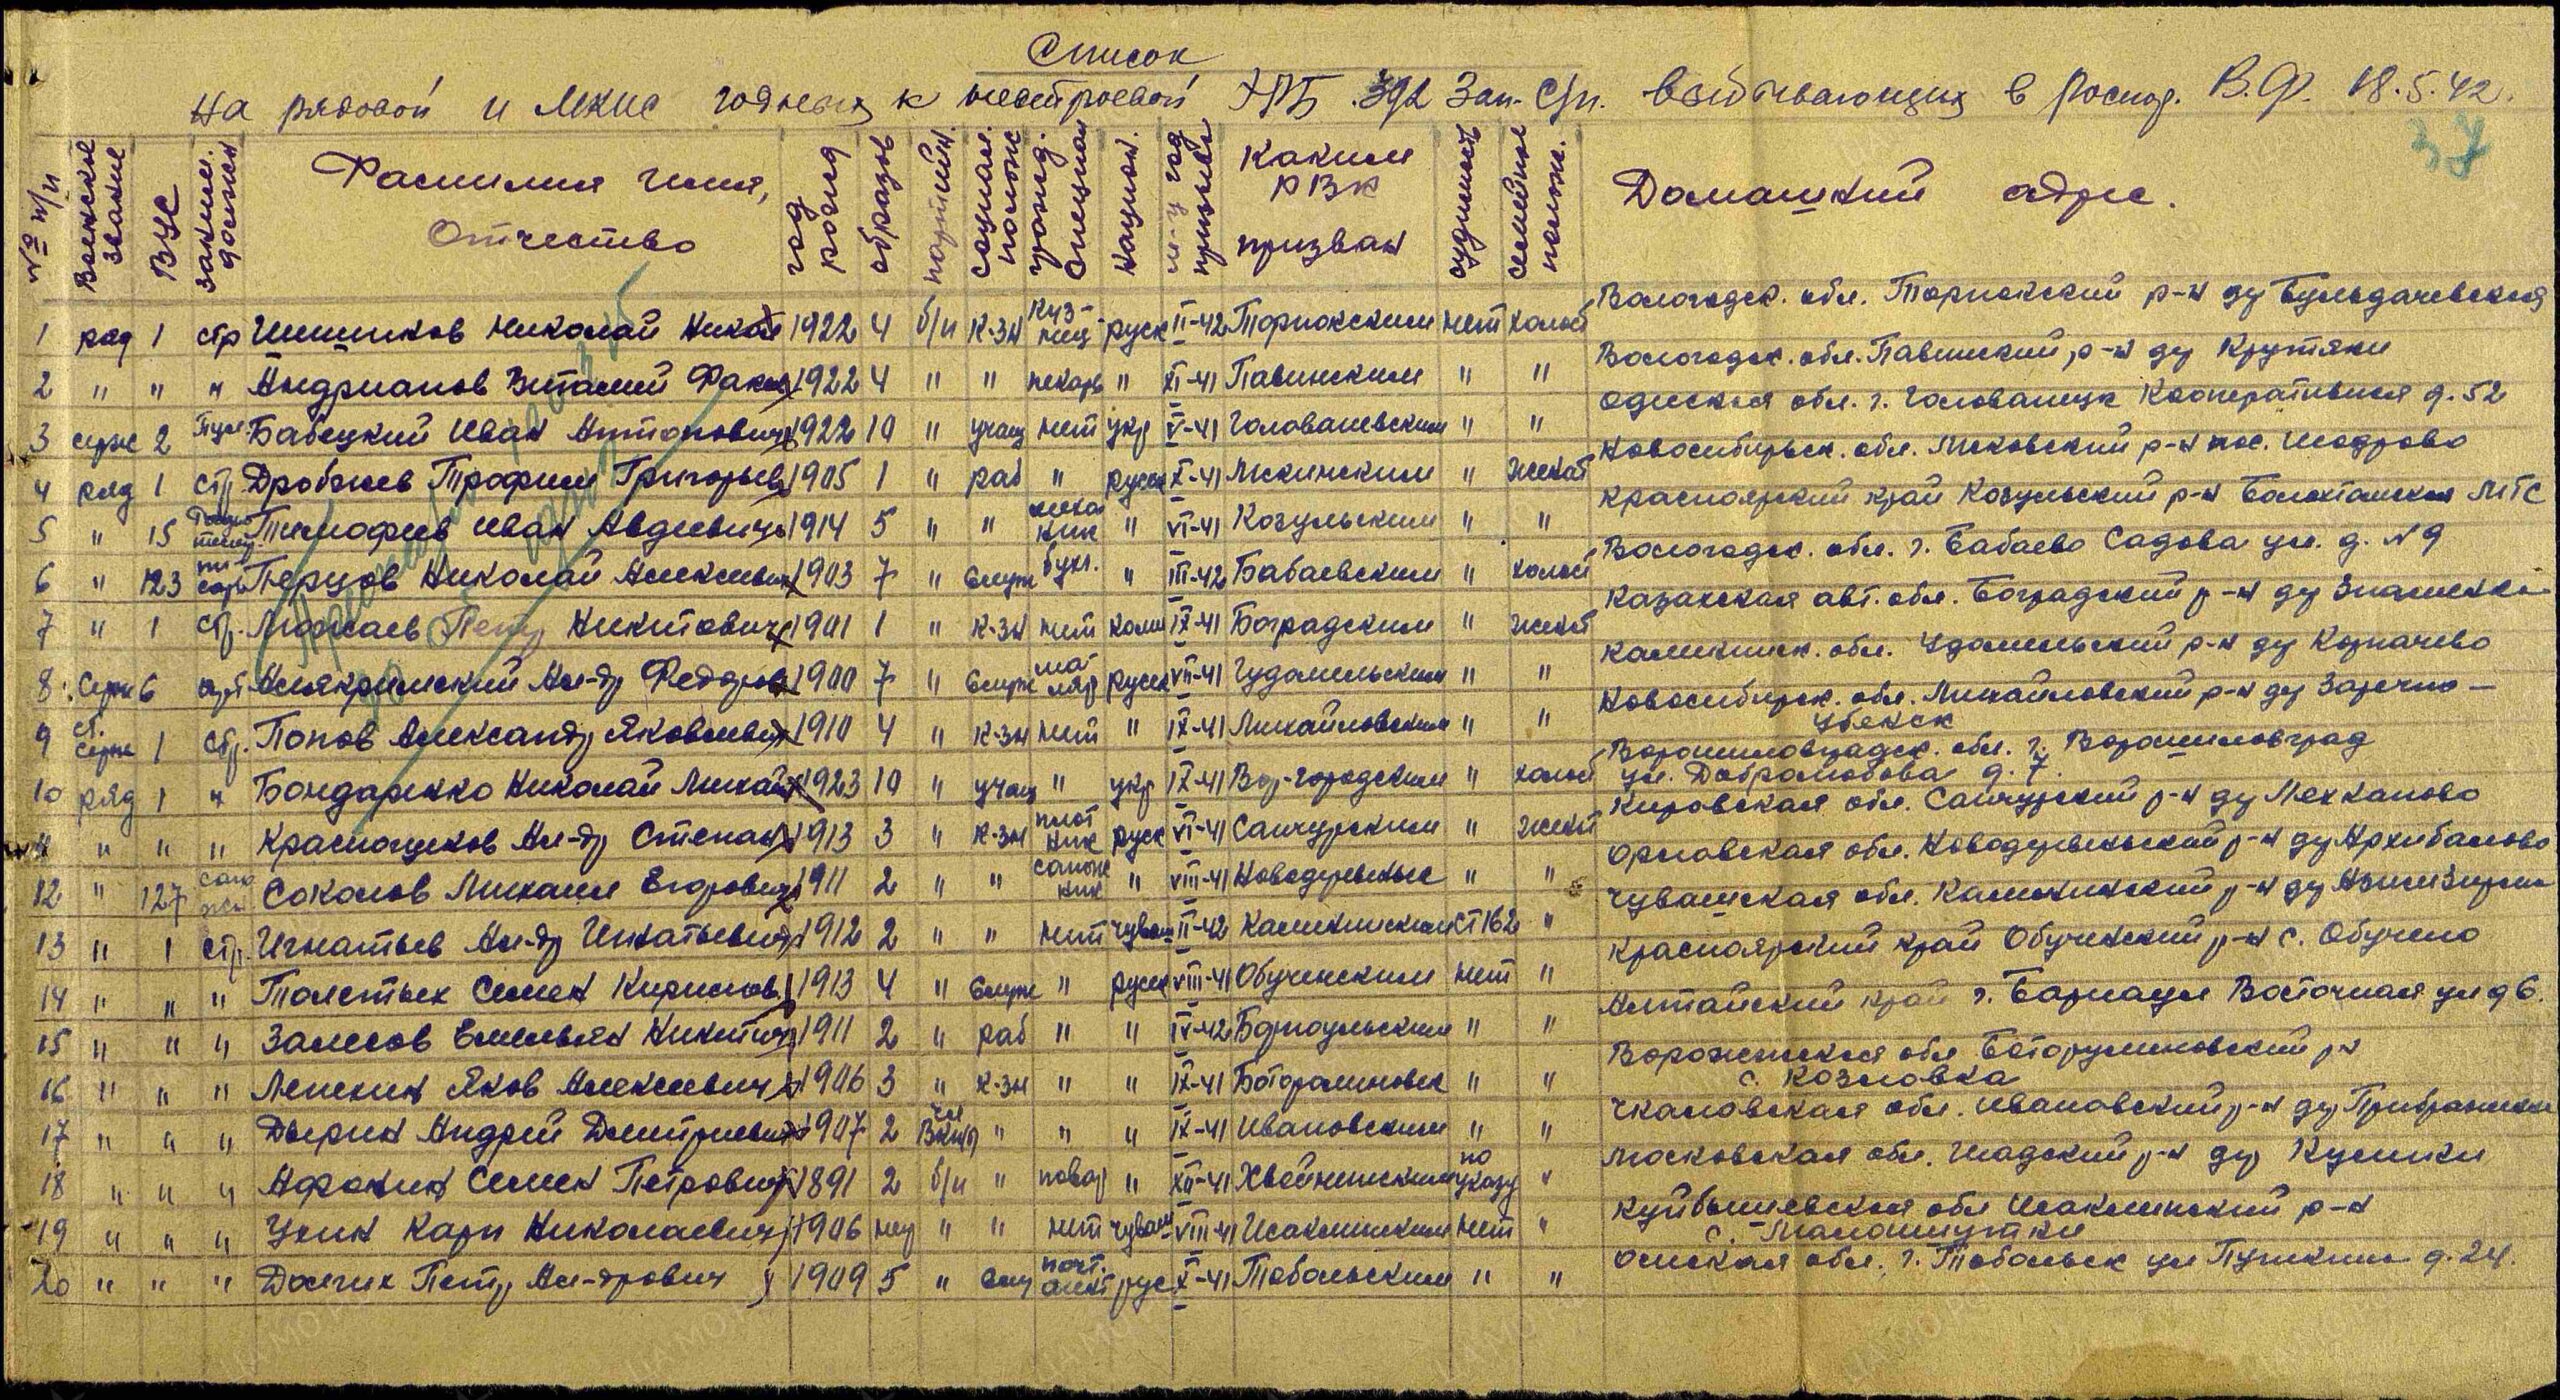 Список
на рядовой и мнс годных к нестроевой АРБ 392 Зап. С/п. выбывающих в распор. В.Ф. 18.5.42.
37
№ п/п Воинское звание ВУС заним. должн Фамилия Имя, Отчество год рожд образов партийн. социал. полож гражд. специал национ. м-ц год призыва Каким РВК призван судимость семейное полож. Домашний адрес.
1 ряд 1 стр Шишиков Николай Никол 1922 4 б/п к-зн кузнец руск II-42 Тарногским нет холост Вологодск. обл. Тарногский р-н ду
2 " " " Андрианов Виталий 1922 4 " " пекарь " XI-41 Павинским " " Вологодск. обл. Павинский р-н ду Крутяки
3 серж 2 Бабецкий Иван Антонович 1922 10 " учащ нет укр V-41 Голованевским " " Одесская обл. г. Кооперативная д. 52
4 ряд 1 стр Трофим Григорьев 1905 1 " раб " руск X-41 " женат Новосибирск. обл. р-н пос. Шодрово
5 " 15 Тимофеев Иван Авдеевич 1914 5 " " механик " VI-41 Козульским " " Красноярский край Козульский р-н МТС
6 " 123 Перцов Николай Алексеевич 1903 7 " служ бухг. " III-42 Бабаевским " холост Вологодск. обл. г. Бабаево Садовая ул. д. N 9
7 " 1 стр. Петр Никитович 1901 1 " к-зн нет IX-41 Боградским " женат авт. обл. Боградский р-н ду Знаменка
8 Серж 6 Ал-др Федоров 1900 7 " служ маляр руск VII-41 " " Калининск. обл. Удомельский р-н ду Корпачево
9 ст. серж 1 стр. Попов Александр Яковлевич 1910 4 " к-зн нет " IX-41 Михайловским " " Новосибирск. обл. Михайловский р-н ду
10 ряд 1 " Бондаренко Николай Михай 1923 10 " учащ " укр IX-41 Вор-городским " холост Ворошиловградск. обл. г. Ворошиловград
ул. Добролюбова д. 7.
11 " " " Краснощеков Ал-др Степан 1913 3 " к-зн плотник руск VI-41 Санчурским " женат Кировская обл. Санчурский р-н ду
12 " 127 Соколов Михаил Егорович 1911 2 " " сапожник " VIII-41 Новодеревеньк " " Орловская обл. Новодеревеньский р-н ду Архибалово
13 " 1 стр. Игнатьев Ал-др Игнатьевич 1912 2 " " нет чуваш II-42 Калининским ст 162 " Чувашская обл. Калининский р-н ду
14 " " " Толстых Семен Кирилов. 1913 4 " служ " руск VIII-41 нет " Красноярский край р-н с.
15 " " " Залесов Емельян Никитич 1911 2 " раб " " IV-42 Барнаульским " " Алтайский край г. Барнаул Восточная ул д 6.
16 " " " Яков Алексеевич 1906 3 " к-зн " " IX-41 " " Воронежская обл р-н
с. Козловка
17 " " " Дырин Андрей Дмитриевич 1907 2 чл ВКП/б " " " IX-41 Ивановским " " Чкаловская обл. Ивановский р-н ду
18 " " " Афонин Семен Петрович 1891 2 б/п " повар " XII-41 по указу " Московская обл. Шацкий р-н ду
19 " " " Карп Николаевич 1906 нег " " нет чуваш VIII-41 Исаклинским нет " Куйбышевская обл Исаклинский р-н
с.
20 " " " Долгих Петр Ал-дрович 1909 5 " служ почт. агент рус X-41 Тобольским " " Омская обл. г. Тобольск ул Пушкина д. 24.